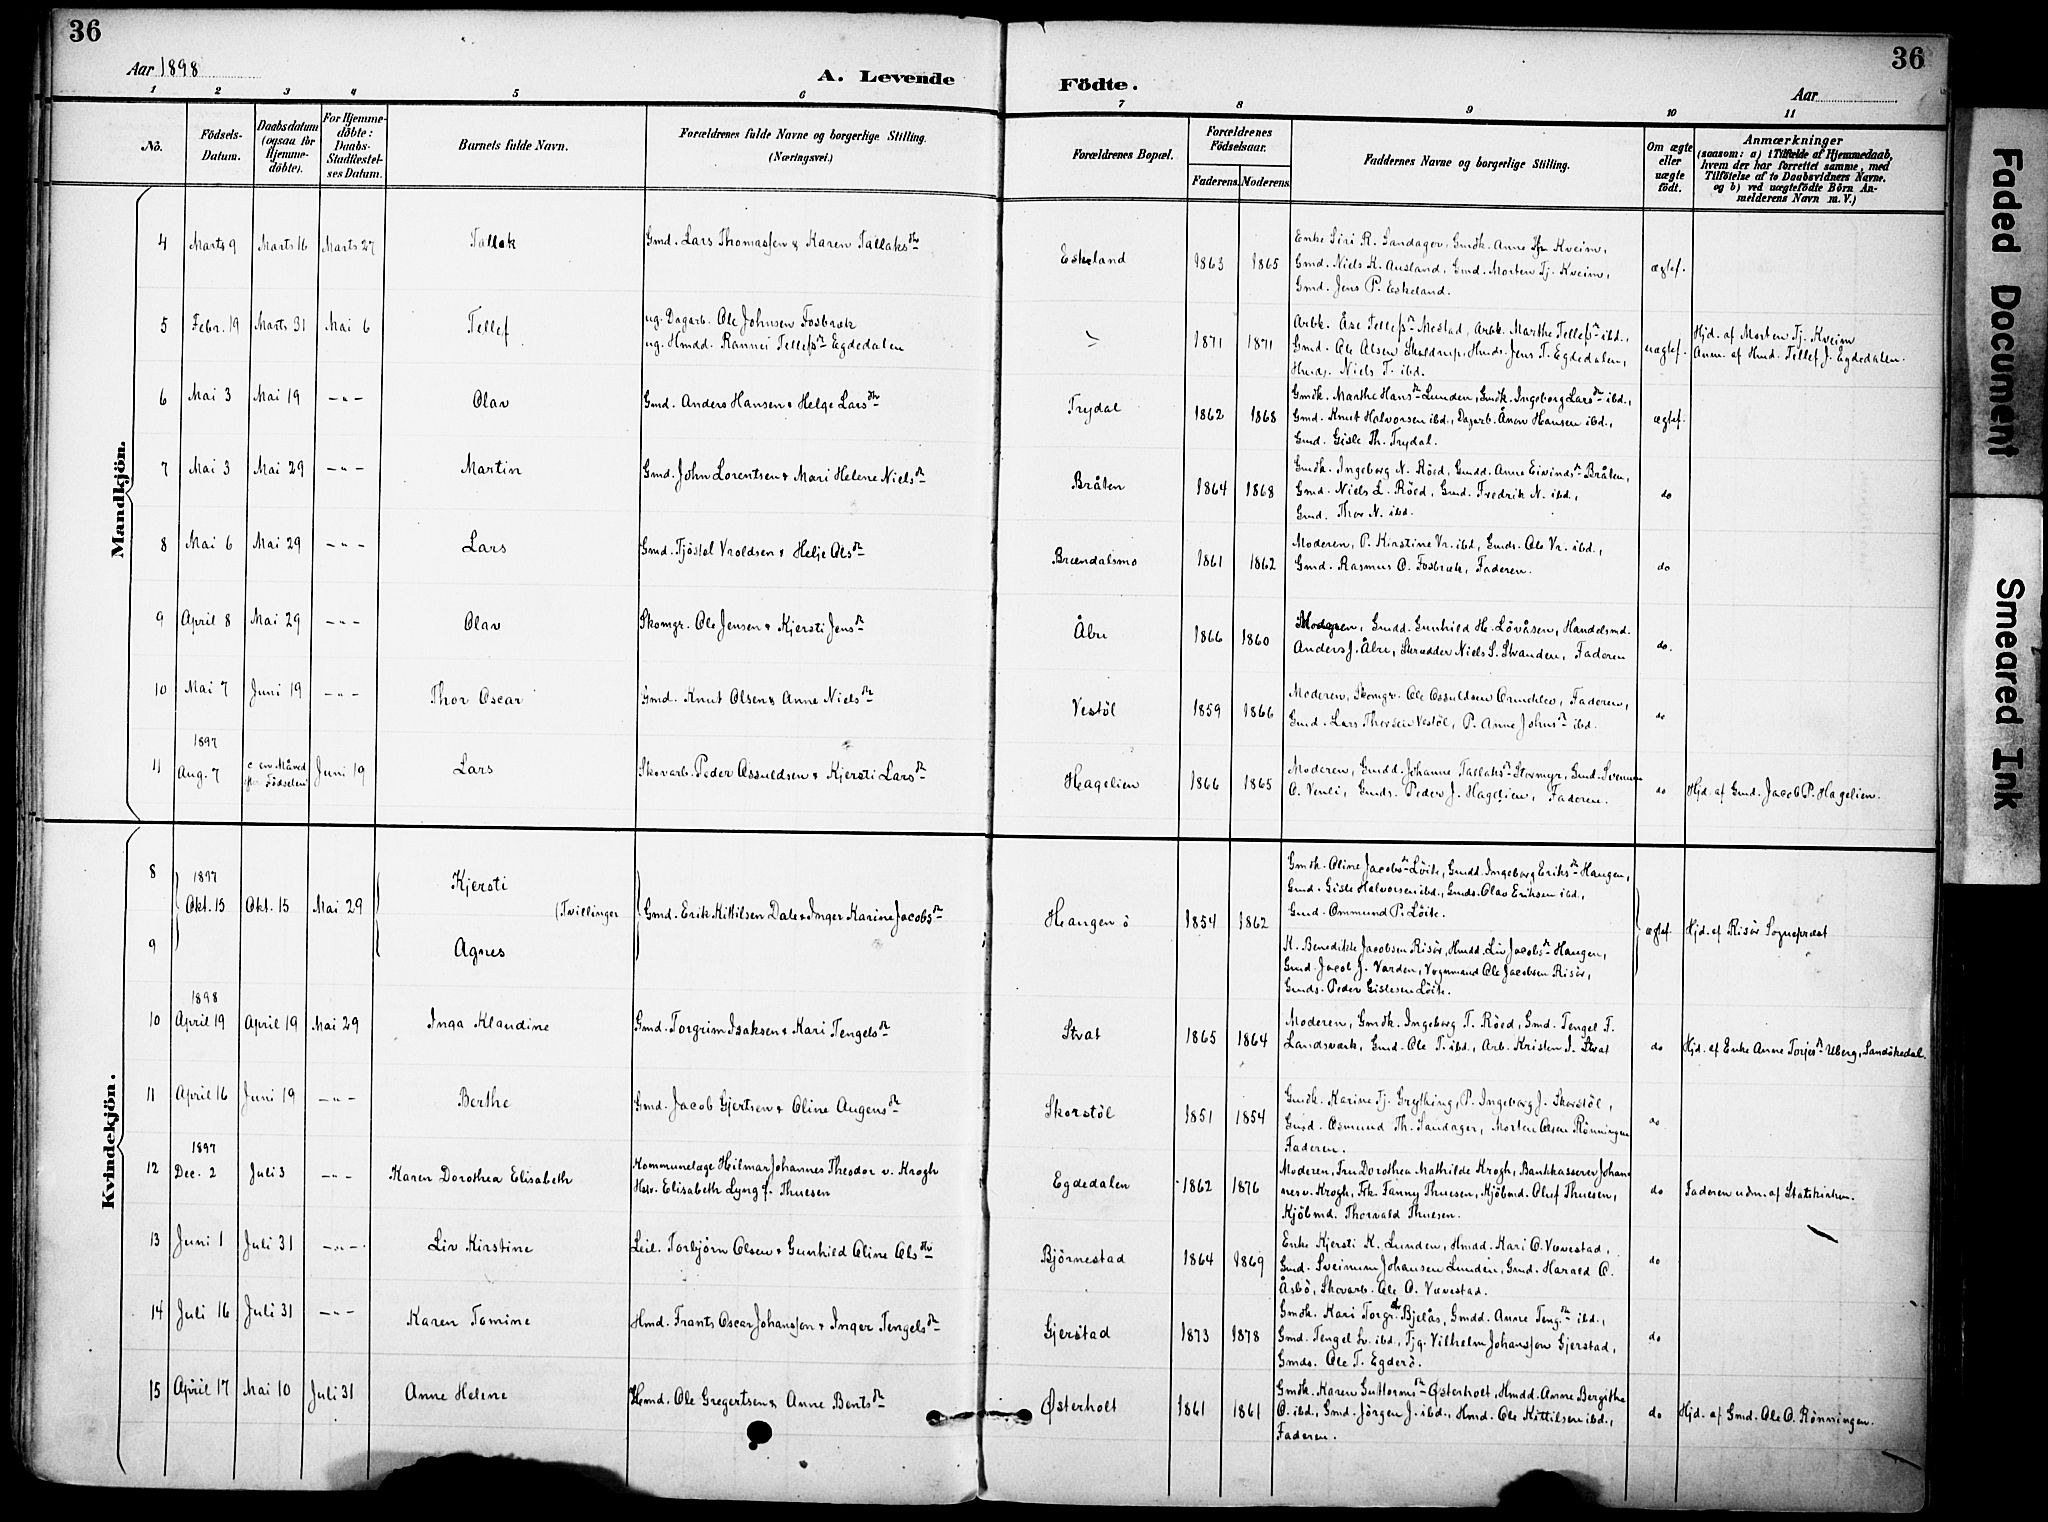 36
Aar 1898
A. Levende
Födte.
Aar
36
1 2 3 4 5 6 7 8 9 10 11
No.
Födsels-Datum.
Daabsdatum (ogsaa for Hjemme-döbte).
For Hjemme-döbte: Daabs-Stadfæstel-ses Datum.
Barnets fulde Navn.
Forældrenes fulde Navne og borgerlige Stilling. (Næringsvei.)
Forældrenes Bopæl.
Forældrenes Födselsaar.
Faderens. Moderens.
Faddernes Navne og borgerlige Stilling.
Om ægte eller uægte födt.
Anmærkninger
(saasom: a) i Tilfælde af Hjemmedaab,
hvem der har forrettet samme, med
Tilföielse af to Daabsvidners Navne.
og b) ved uægtefödte Börn An-
melderens Navn m. V.)
Mandkjön.
4 Marts 9 Marts 16 Marts 27 Tallak Gmd. Lars Thomassen & Karen Tallaksdtr Eskeland 1863 1865 ægtef.
Enke Siri R. Sandager, Gmdk. Anne Kveim,
Gmd. Niels K. Ausland, Gmd. Morten Tj. Kveim,
Gmd. Jens P. Eskeland.
5 Febr. 19 Marts 31 Mai 6 Tellef
ug. Dagarb. Ole Johnsen Fosbræk
ug. Hmdd. Rannei Tellefsdtr Egdedalen
1871 1871 uægtef.
Arbk. Åse Tellefsdtr Mostad, Arbk. Marthe Tellefsdtr ibd.,
Gmd. Ole Olsen Skaldrup, Hmds. Jens T. Egdedalen,
Hmds. Niels T. ibd.
Hjd. af Morten Tj. Kveim
Anm. af Hmd. Tellef J. Egdedalen.
6 Mai 3 Mai 19 -"- Olav Gmd. Anders Hansen & Helge Larsdtr Trydal 1862 1868 ægtef.
Gmdk. Marthe Hansdtr Lunden, Gmdk. Ingeborg Larsdtr ibd.,
Gmd. Knut Halvorsen ibd., Dagarb. Ånon Hansen ibd.,
Gmd. Gisle Th. Trydal.
7 Mai 3 Mai 29 -"- Martin Gmd. John Lorentsen & Mari Helene Nielsdtr Bråten 1864 1868 do
Gmdk. Ingeborg N. Röed, Gmdd. Anne Eivindsdtr Bråten,
Gmd. Niels L. Röed, Gmd. Fredrik N. ibd.,
Gmd. Thor N. ibd.
8 Mai 6 Mai 29 -"- Lars Gmd. Tjöstol Vroldsen & Helje Olsdtr Brændalsmo 1861 1862 do
Moderen, P. Kirstine Vr. ibd, Gmds. Ole Vr. ibd.,
Gmd. Rasmus O. Fosbræk, Faderen.
9 April 8 Mai 29 -"- Olav Skomgr. Ole Jensen & Kjersti Jensdtr Åbu 1866 1860 do.
Moderen, Gmdd. Gunhild H. Lövåsen, Handelsmd.
Anders J. Åbu, Skrædder Niels S. Stranden, Faderen
10 Mai 7 Juni 19 -"- Thor Oscar Gmd. Knut Olsen & Anne Nielsdtr Vestöl 1859 1866 do
Moderen, Skomgr. Ole Ossuldsen Ormdalen, Faderen,
Gmd. Lars Thorsen Vestöl, P. Anne Johnsdtr ibd.
11 1897 Aug. 7 c. en Måned efter Födselen Juni 19 Lars Skovarb. Peder Ossuldsen & Kjersti Larsdtr Hagelien 1866 1865 do
Moderen, Gmdd. Johanne Tallaksdtr Stormyr, Gmd. Sveinum
O. Venli, Gmds. Peder J. Hagelien, Faderen.
Hjd. af Gmd. Jacob P. Hagelien.
Kvindekjön.
8 Kjersti
9 Agnes
(Tvillinger
1897 Okt. 15 Okt. 15 Mai 29 Gmd. Erik Kittilsen Dale & Inger Karine Jacobsdtr Haugen ö 1854 1862 ægtef.
Gmdk. Oline Jacobsdtr Löite, Gmdd. Ingeborg Eriksdtr Haugen,
Gmd. Gisle Halvorsen ibd., Gmds. Olav Eriksen ibd.,
Gmd. Ommund P. Löite.
K. Benedikte Jacobsen Risör, Hmdd. Liv Jacobsdtr Haugen,
Gmd. Jacob J. Varden, Vognmand Ole Jacobsen Risör,
Gmds. Peder Gislesen Löite.
Hjd. af Risör Sognepræst
10 1898 April 19 April 19 Mai 29 Inga Klaudine Gmd. Torgrim Isaksen & Kari Tengelsdtr Stvat 1865 1864 do
Moderen, Gmdk. Ingeborg T. Röed, Gmd. Tengel F.
Landsværk, Gmd. Ole T. ibd., Arb. Kristen I. Stvat
Hjd. af Enke Anne Torjesdtr Uberg, Sandökedal.
11 April 16 Juni 19 -"- Berthe Gmd. Jacob Gjertsen & Oline Augensdtr Skorstöl 1851 1854 do
Gmdk. Karine Tj. Gryting, P. Ingeborg J. Skorstöl,
Gmd. Osmund Th. Sandager, Morten Olsen Rönningen
Faderen.
12 1897 Dec. 2 Juli 3 -"- Karen Dorothea Elisabeth
Kommunelæge Hilmar Johannes Theodor v. Krogh
Hsr. Elisabeth Lyng f. Thuesen
Egdedalen 1862 1876 do
Moderen, Fru Dorothea Mathilde Krogh, Bankkasserer Johan-
nes v. Krogh, Frk. Fanny Thuesen, Kjöbmd. Oluf Thuesen,
Kjöbmd. Thorvald Thuesen.
Faderen udm. af Statskirken.
13 Juni 1 Juli 31 -"- Liv Kirstine Leil. Torbjörn Olsen & Gunhild Oline Olsdtr Björnestad 1864 1869 do
Enke Kjersti K. Lunden, Hmdd. Kari O. Vævestad,
Gmd. Sveinum Johansen Lunden, Gmd. Harald O.
Åsbö, Skovarb. Ole O. Vævestad.
14 Juli 16 Juli 31 -"- Karen Tomine Hmd. Frants Oscar Johanssen & Inger Tengelsdtr Gjerstad 1873 1878 do
Gmdk. Kari Torgr.dtr Bjelås, Gmdd. Anne Teng.dtr ibd.,
Gmd. Tengel Sv. ibd., Tjg. Vilhelm Johanssen Gjerstad,
Gmds. Ole T. Egderö.
15 April 17 Mai 10 Juli 31 Anne Helene Hmd. Ole Gregertsen & Anne Bentsdtr Østerholt 1861 1861 do
Gmdk. Karen Guttormsdtr Østerholt, Hmdd. Anne Bergithe
O. ibd., Gmd. Jörgen J. ibd., Hmd. Ole Kittilsen ibd.,
Faderen.
Hjd. af Gmd. Ole O. Rönningen.
Faded Document
Smeared Ink